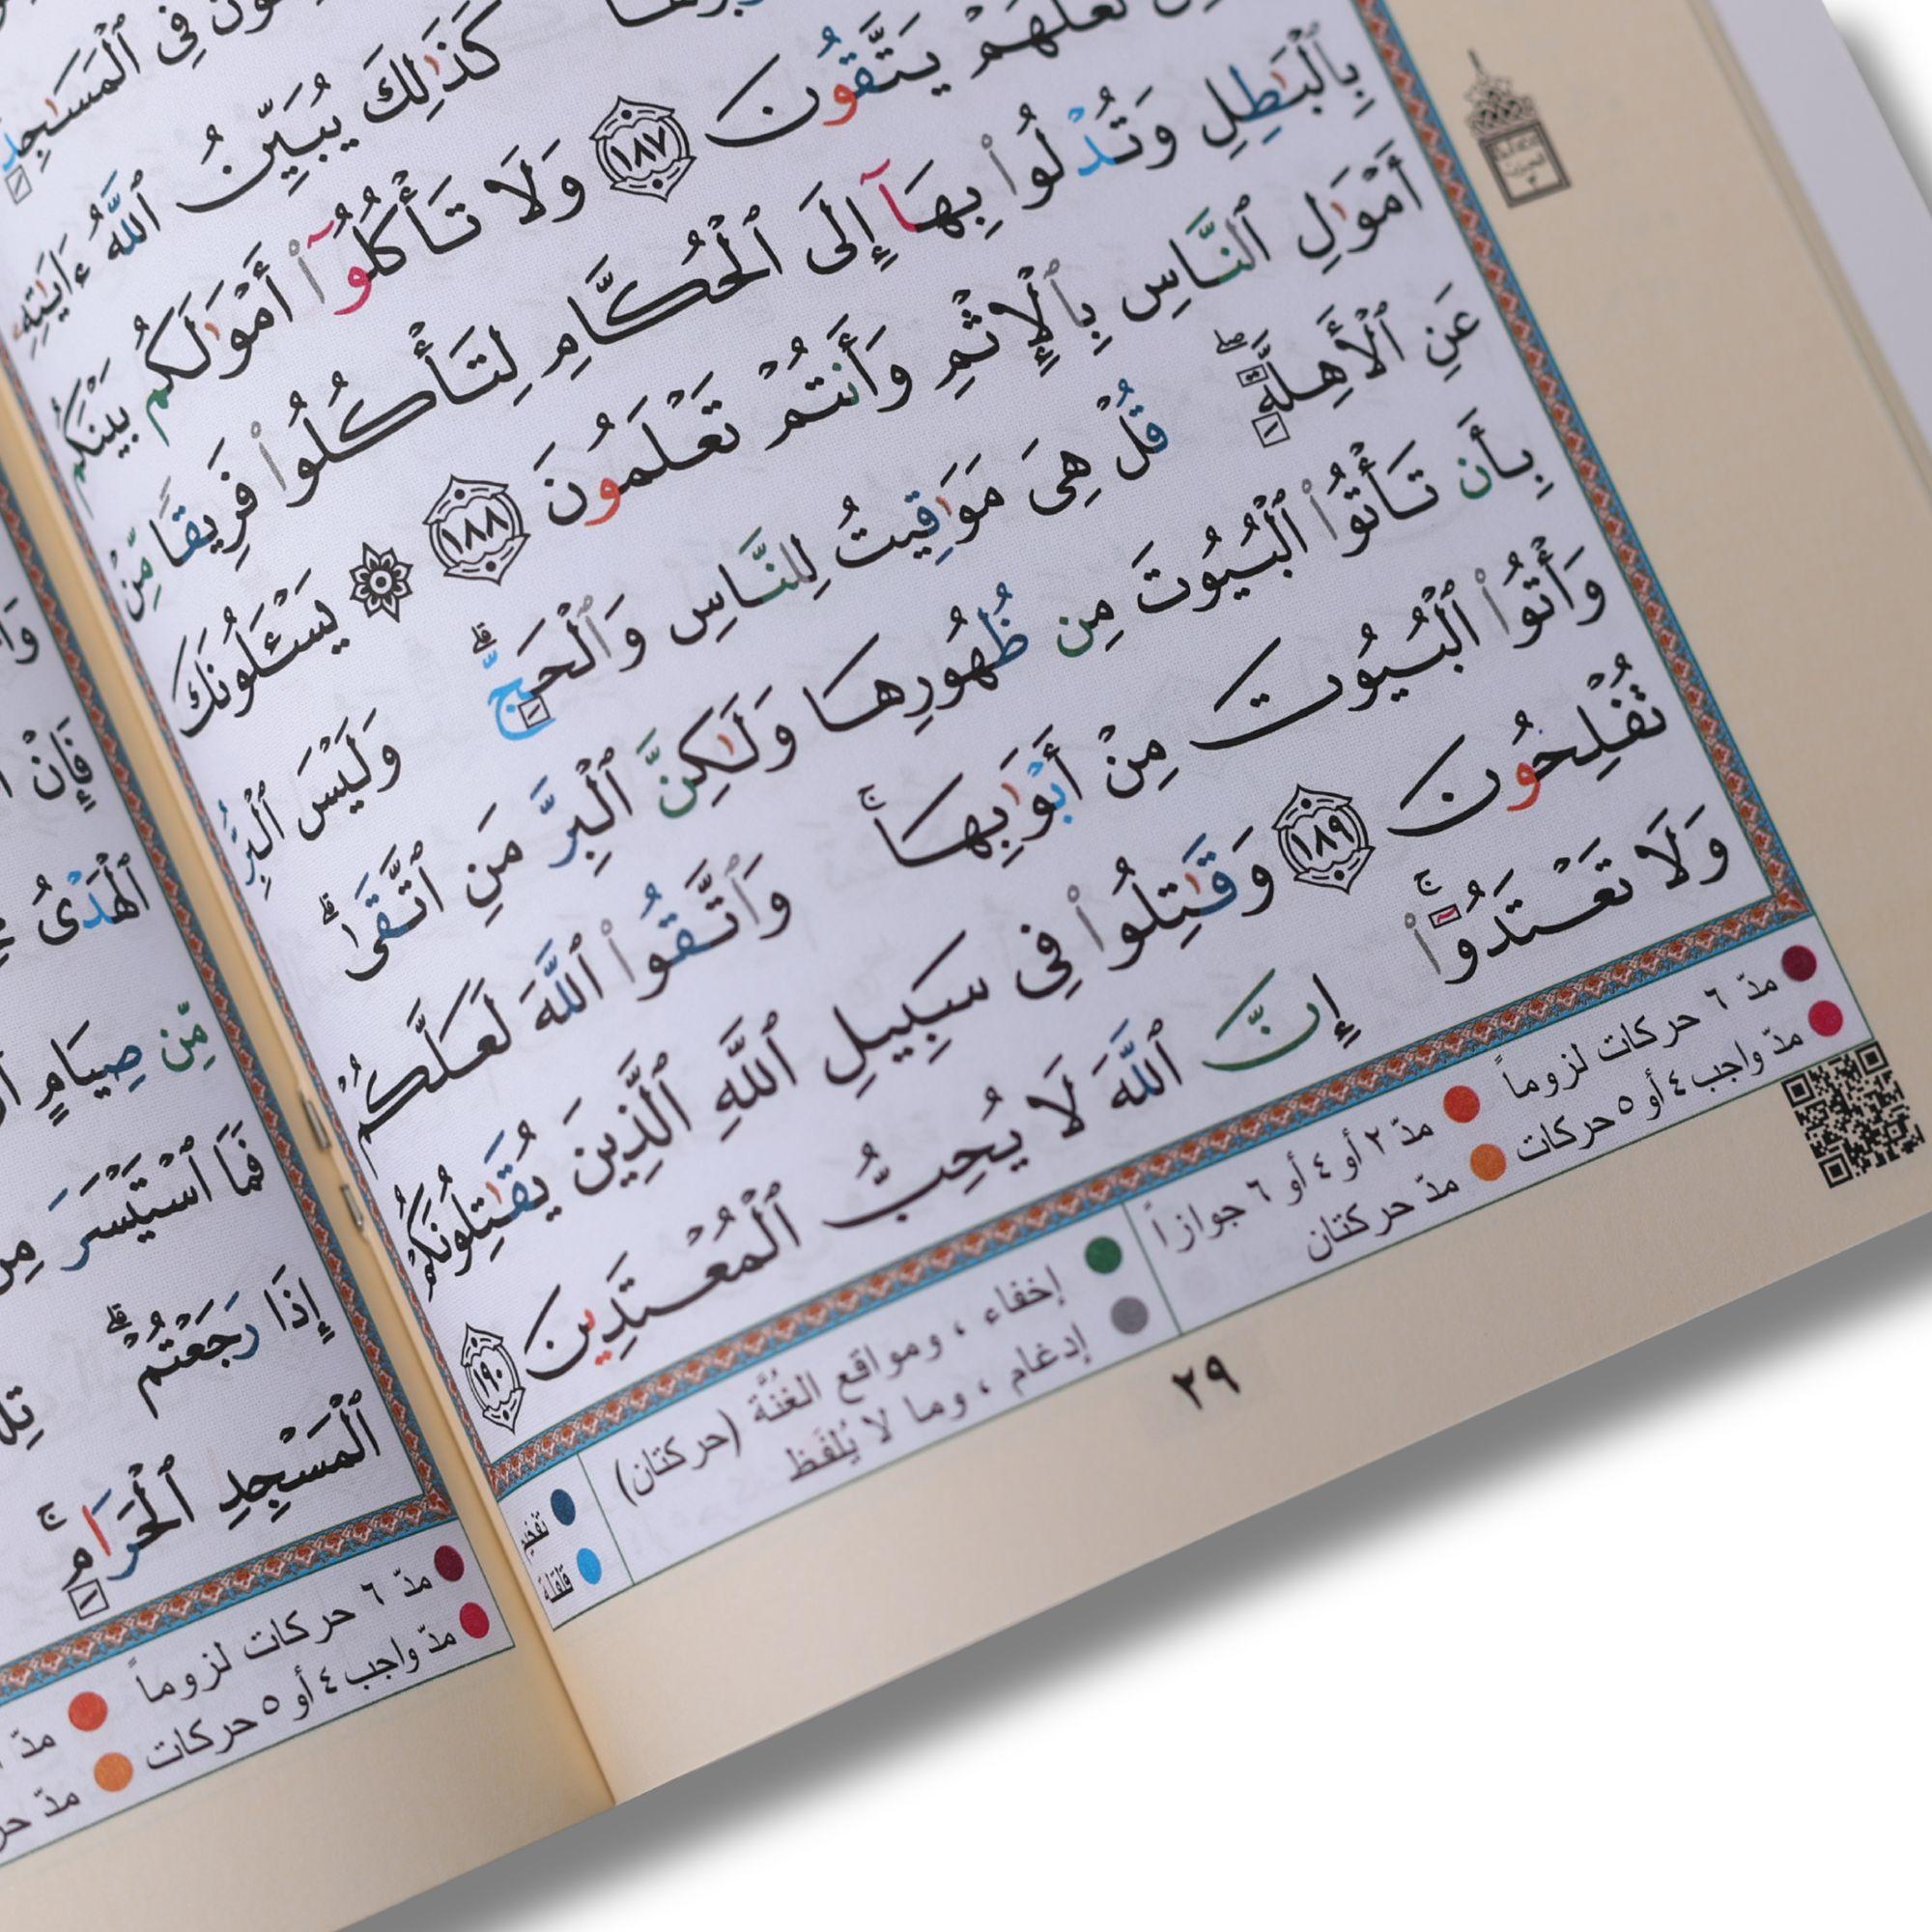 فِي ٱلْمَسَٰجِدِ
كَذَٰلِكَ يُبَيِّنُ ٱللَّهُ ءَايَٰتِهِۦ
لَعَلَّهُمْ يَتَّقُونَ ١٨٧ وَلَا تَأْكُلُوٓا۟ أَمْوَٰلَكُم بَيْنَكُم
بِٱلْبَٰطِلِ وَتُدْلُوا۟ بِهَآ إِلَى ٱلْحُكَّامِ لِتَأْكُلُوا۟ فَرِيقًا مِّنْ
أَمْوَٰلِ ٱلنَّاسِ بِٱلْإِثْمِ وَأَنتُمْ تَعْلَمُونَ ١٨٨ ۞ يَسْـَٔلُونَكَ
عَنِ ٱلْأَهِلَّةِۖ قُلْ هِىَ مَوَٰقِيتُ لِلنَّاسِ وَٱلْحَجِّۗ وَلَيْسَ ٱلْبِرُّ
بِأَن تَأْتُوا۟ ٱلْبُيُوتَ مِن ظُهُورِهَا وَلَٰكِنَّ ٱلْبِرَّ مَنِ ٱتَّقَىٰۗ
وَأْتُوا۟ ٱلْبُيُوتَ مِنْ أَبْوَٰبِهَاۚ وَٱتَّقُوا۟ ٱللَّهَ لَعَلَّكُمْ
تُفْلِحُونَ ١٨٩ وَقَٰتِلُوا۟ فِى سَبِيلِ ٱللَّهِ ٱلَّذِينَ يُقَٰتِلُونَكُمْ
وَلَا تَعْتَدُوٓا۟ۚ إِنَّ ٱللَّهَ لَا يُحِبُّ ٱلْمُعْتَدِينَ ١٩٠
مدّ ٦ حركات لزوماً
مدّ ٢ أو ٤ أو ٦ جوازاً
إخفاء ، ومواقع الغُنَّة (حركتان)
تفخيم
مدّ واجب ٤ أو ٥ حركات
مدّ حركتان
إدغام ، وما لا يُلفَظ
قلقلة
٢٩
فَإِنْ
ٱلْهَدْىُ
مِّن صِيَامٍ
فَمَا ٱسْتَيْسَرَ مِنَ
إِذَا رَجَعْتُمْۗ
ٱلْمَسْجِدِ ٱلْحَرَامِۚ
مدّ ٦ حركات لزوماً
مدّ
مدّ واجب ٤ أو ٥ حركات
مدّ